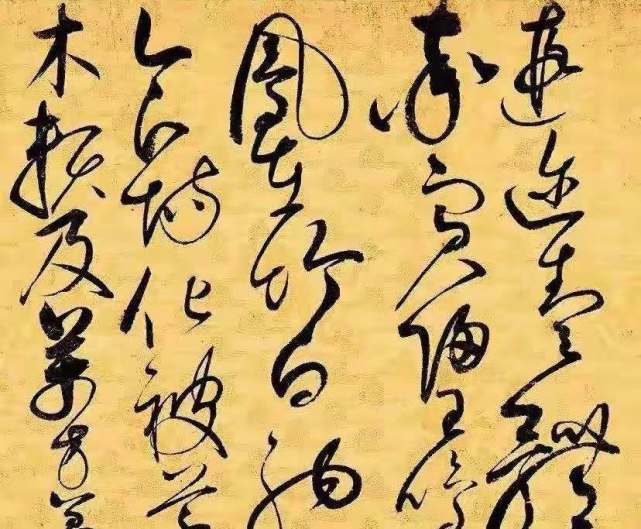 遐迩壹體
率賓歸王鳴
鳳在竹白駒
食場化被草
木賴及萬方蓋